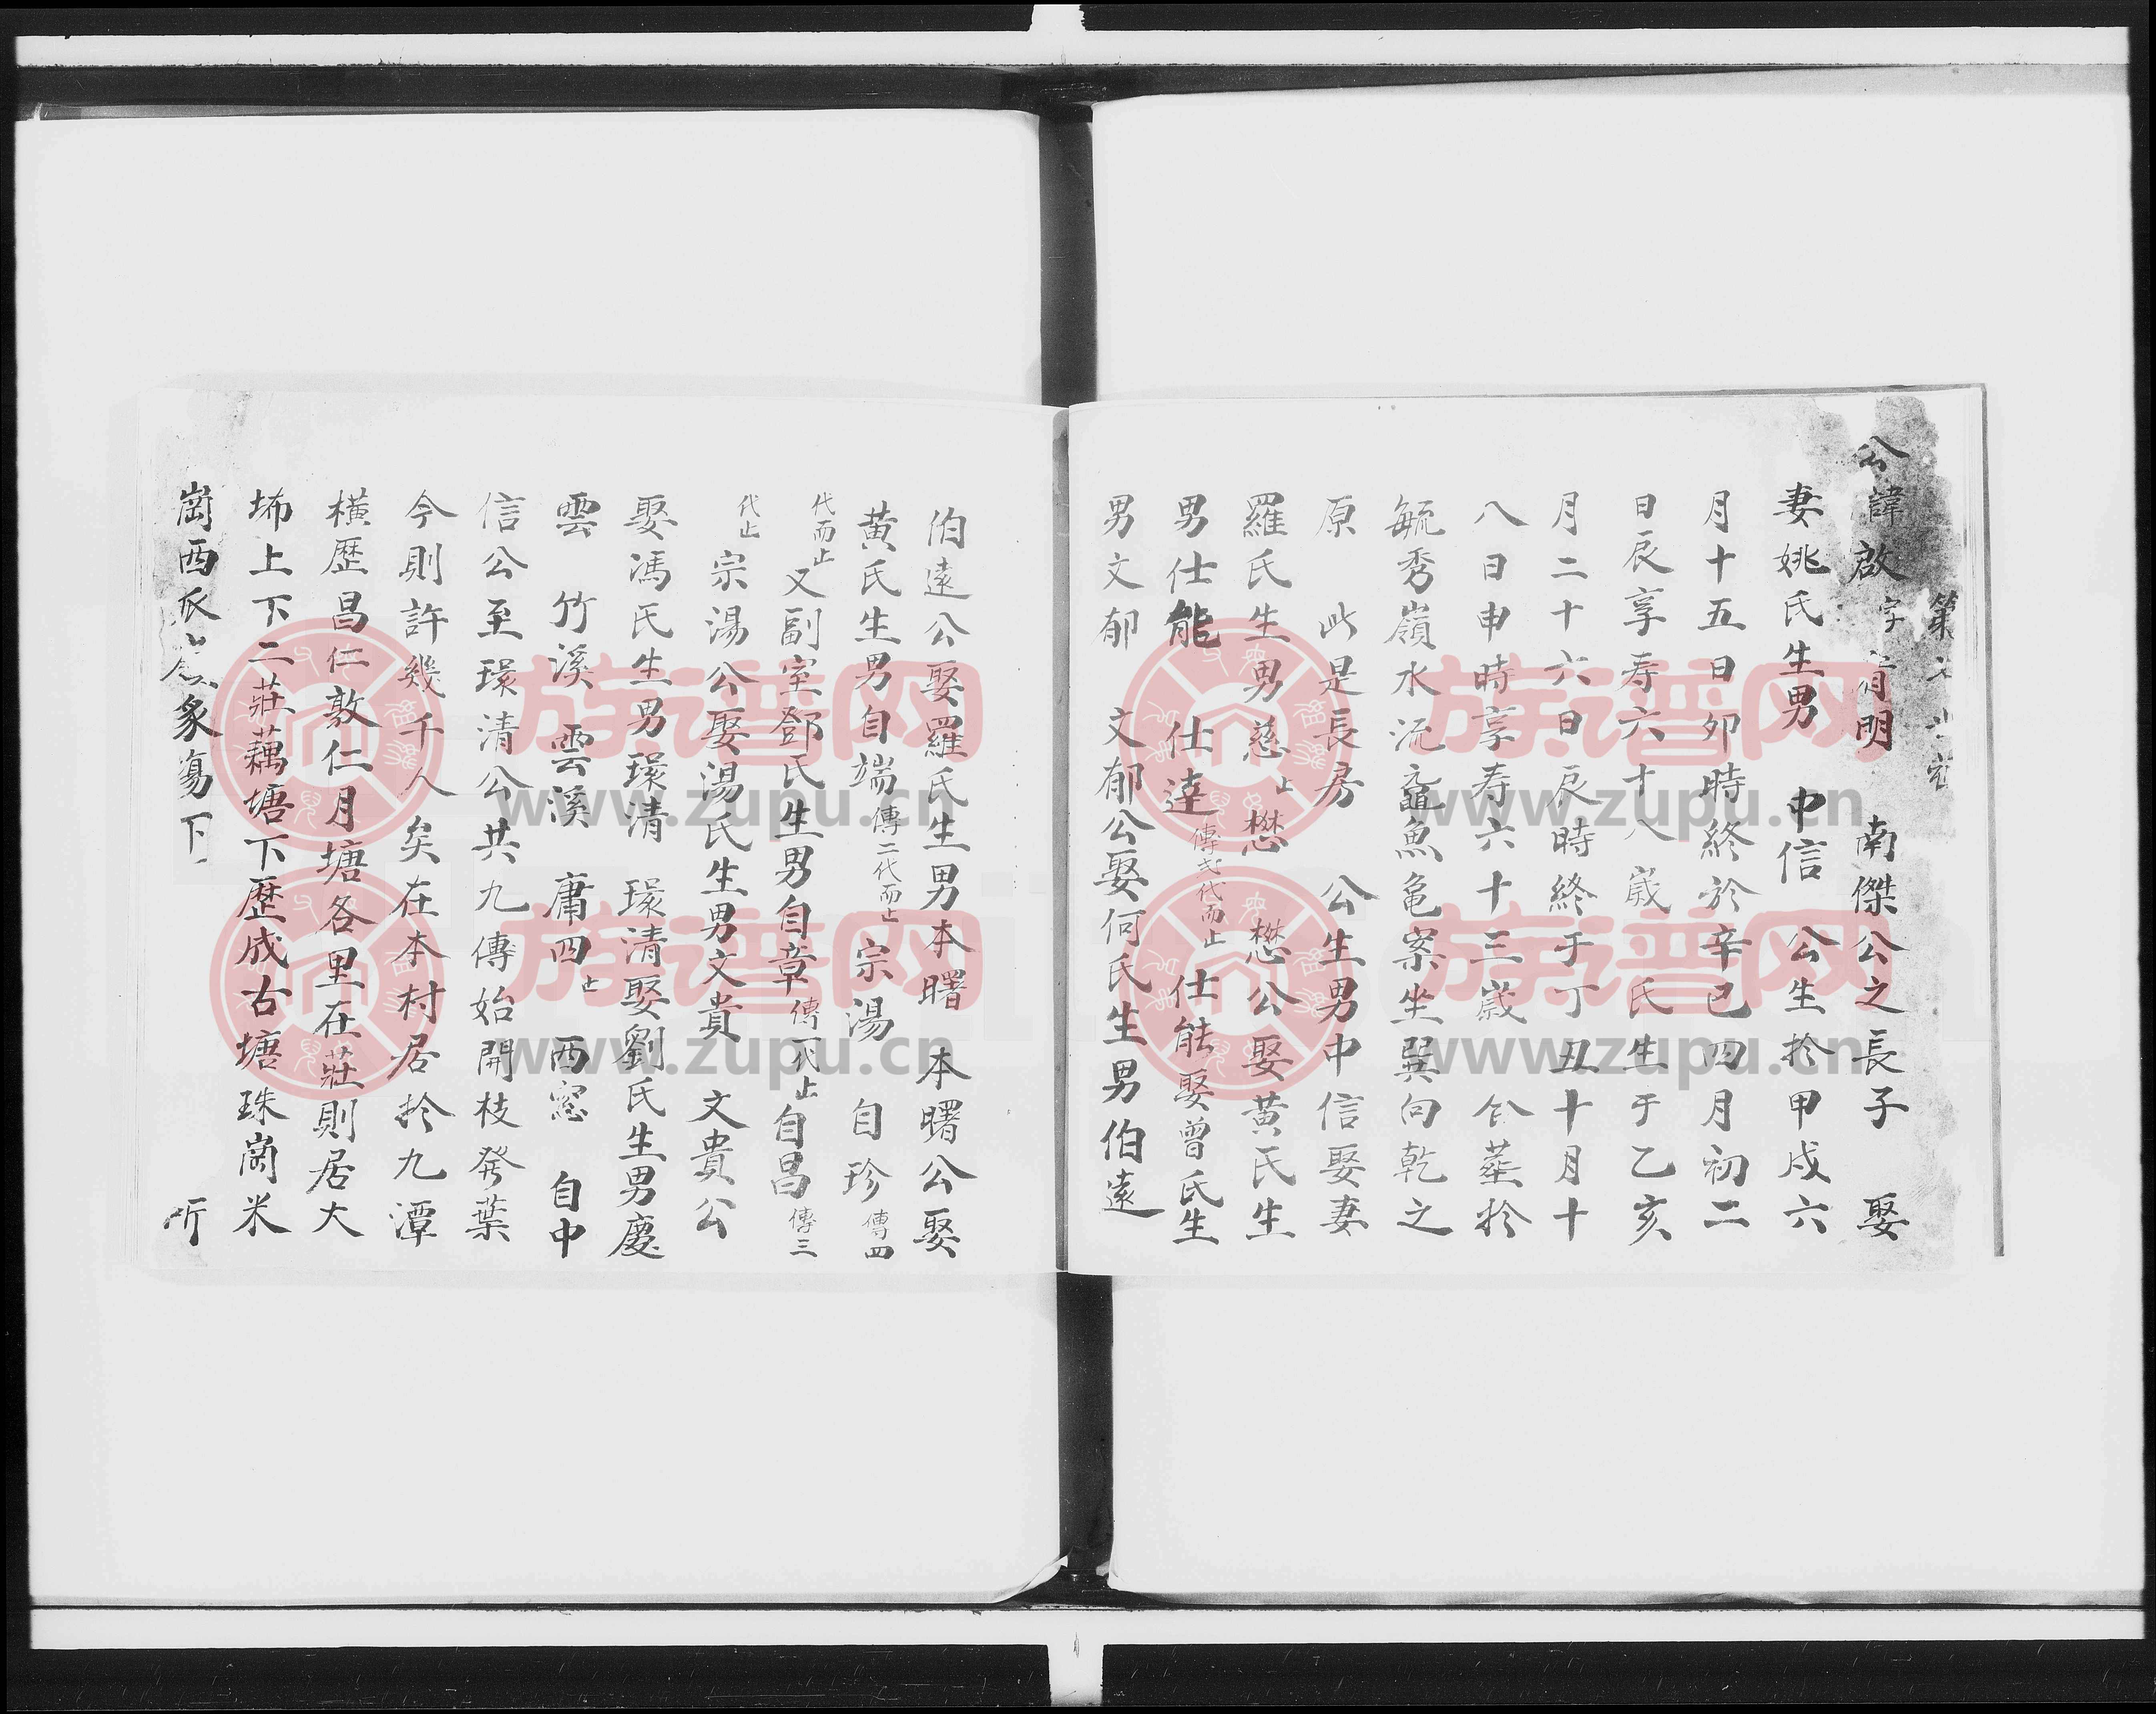 第
公諱啟字明 南傑公之長子 娶
妻姚氏生男 中信 公生於甲戌六
月十五日卯時終於辛巳四月初二
日辰享寿六十八歲 氏生于乙亥
月二十六日辰時終于丁丑十月十
八日申時享寿六十三歲 合葬於
毓秀嶺水流龜魚黽案坐巽向乾之
原 此是長房 公生男中信娶妻
羅氏生男慈止懋 懋公娶黃氏生
男仕能 仕達傳弍代而止 仕能娶曾氏生
男文郁 文郁公娶何氏生男伯遠
伯遠公娶羅氏生男本曙 本曙公娶
黃氏生男自端傳二代而止 宗湯 自珍傳四
代而止又副室鄧氏生男自章傳一代止自昌傳三
代止 宗湯公娶湯氏生男文貴 文貴公
娶馮氏生男環清 環清娶劉氏生男慶
雲 竹溪 雲溪 庸四止 西窓 自中
信公至環清公共九傳始開枝發葉
今則許幾千人矣在本村居於九潭
橫歷昌仁敦仁月塘各里在莊則居大
㘵上下二莊藕塘下歷成古塘珠崗米
崗西 象 下 所
族谱网
www.zupu.cn
族谱网
www.zupu.cn
族谱网
www.zupu.cn
族谱网
www.zupu.cn